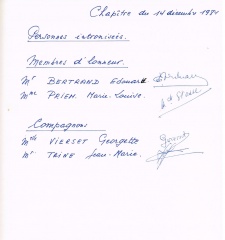 Chapitre du 14 décembre 1981
Personnes intronisées.
Membres d'honneur.
Mr BERTRAND Edouard
Mme PRIEM. Marie-Louise.
Compagnons
Mlle VIERSET Georgette
Mr TRINE Jean-Marie.